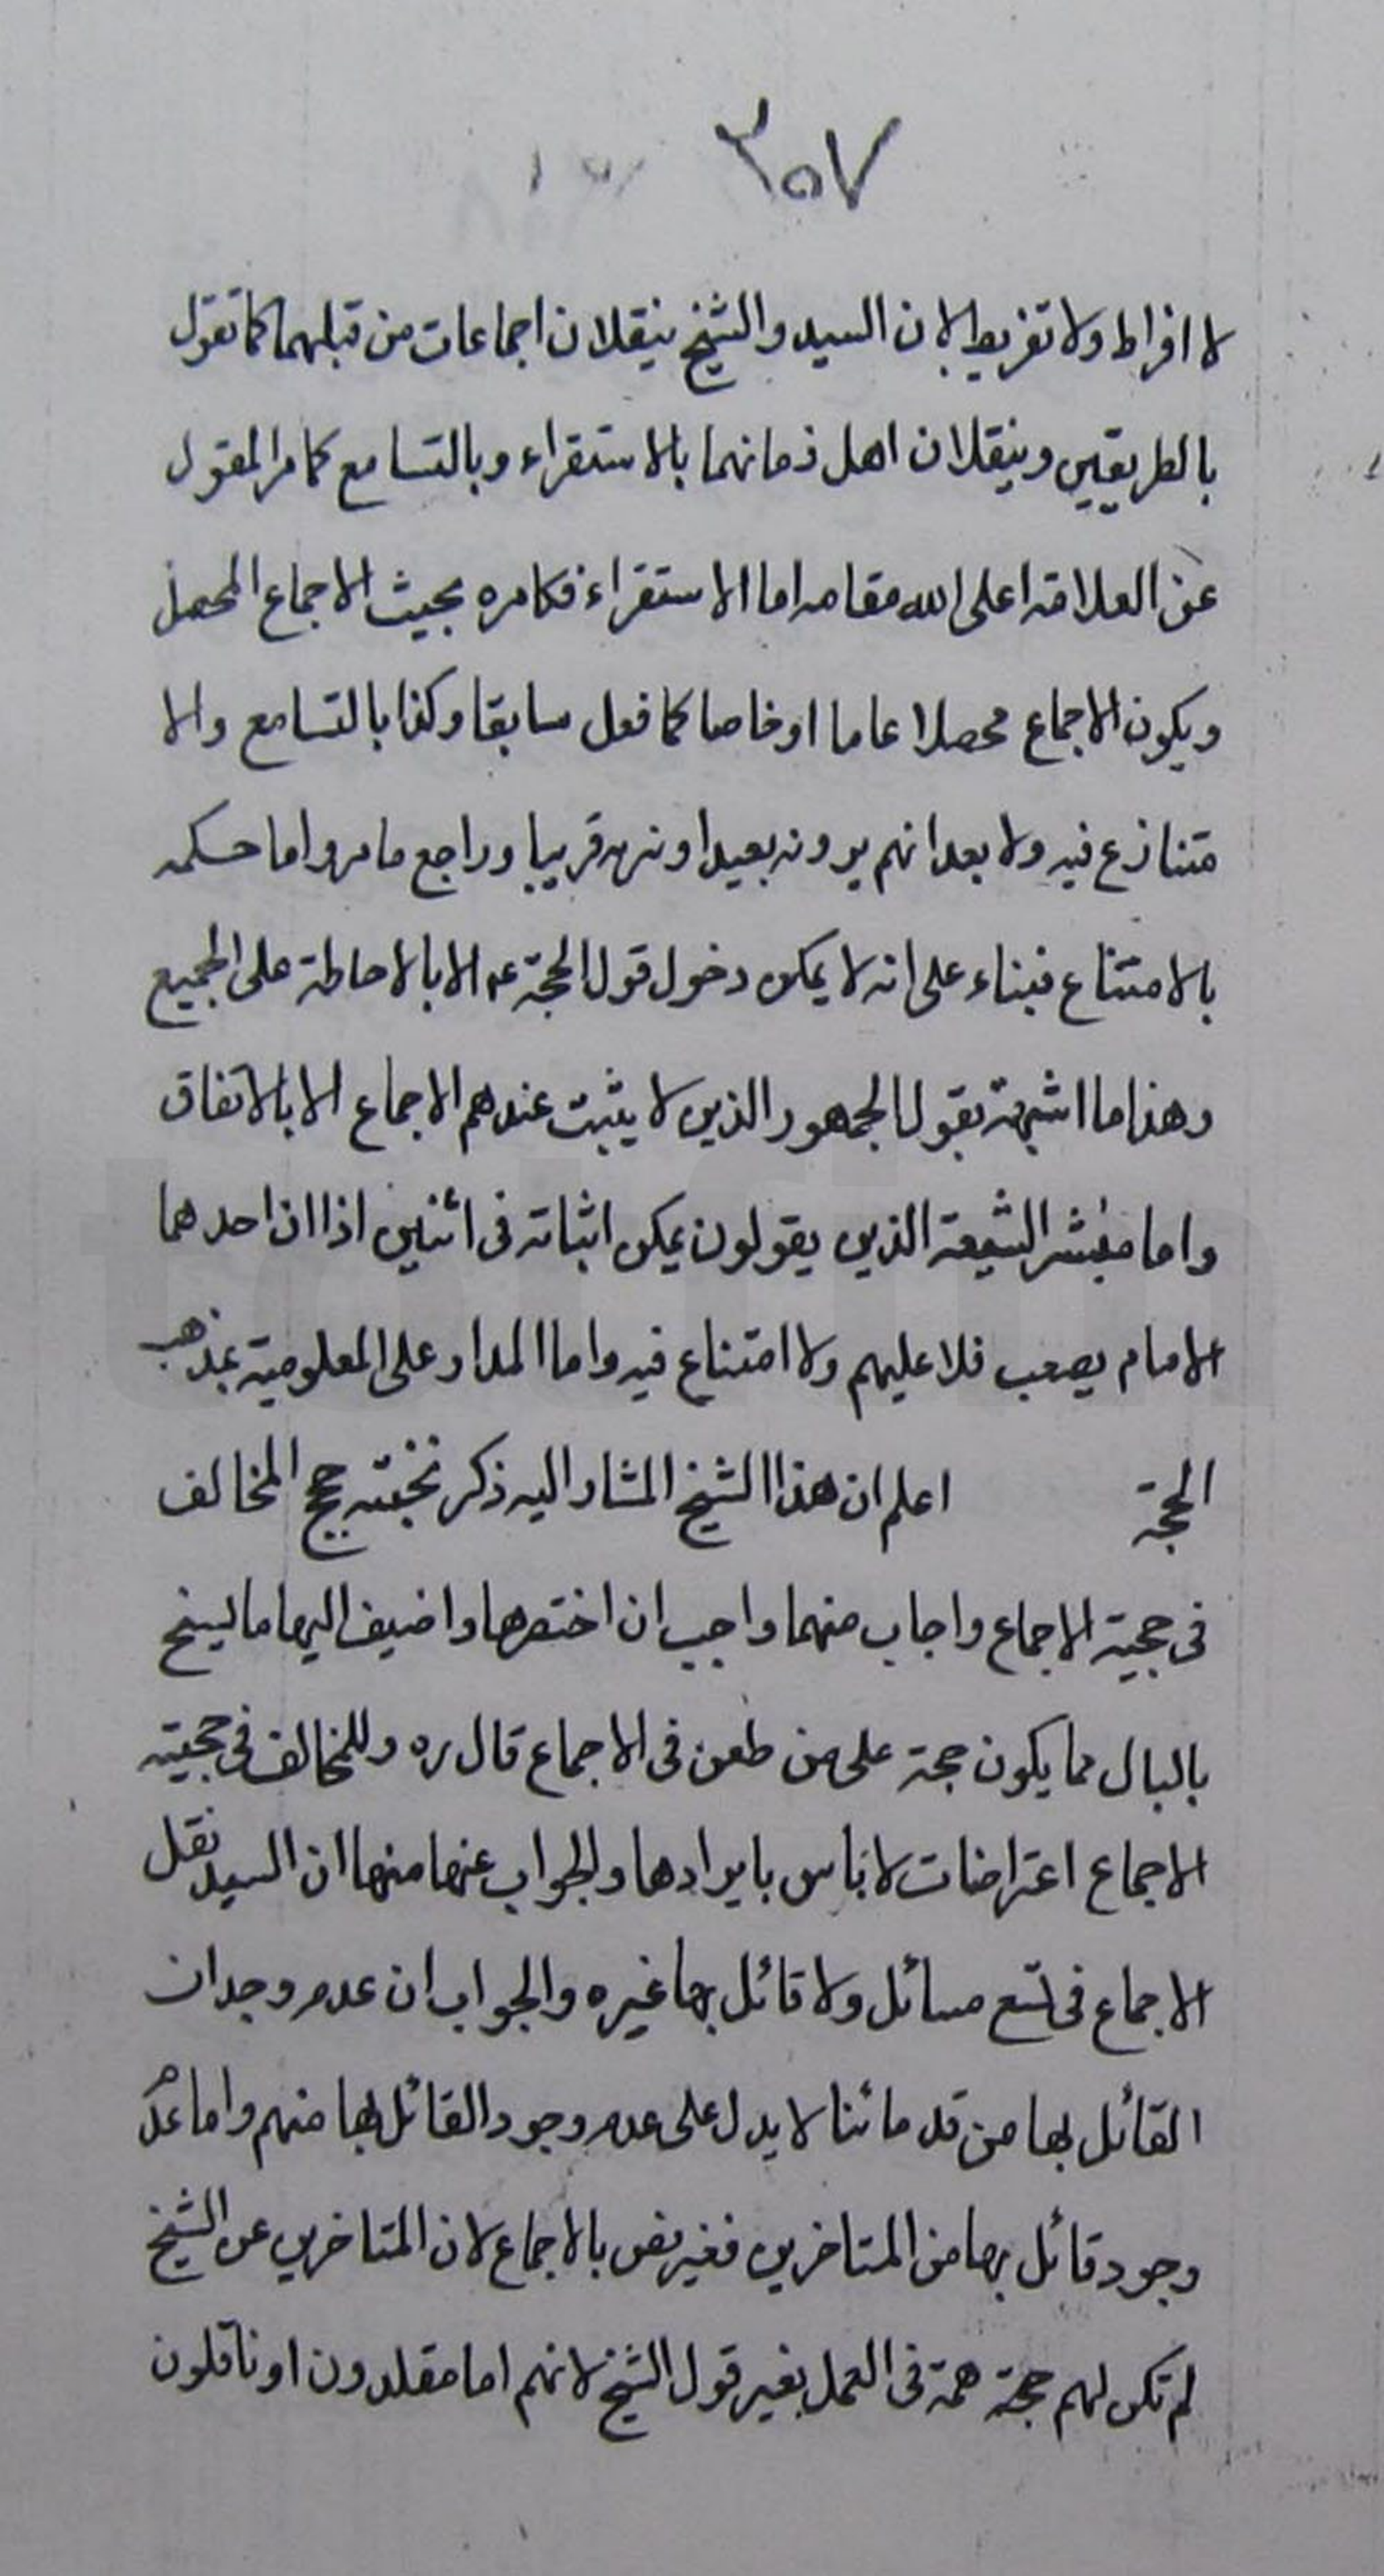 ٣٥٧
لا افراط ولا تفريط لان السيد والشيخ ينقلان اجماعات من قبلهما كما تقول
بالطريقين وينقلان اهل زمانهما بالاستقراء وبالتسامع كما مر المقول
عن العلامة اعلى الله مقامه اما الاستقراء فكما مره بحيث الاجماع المحصل
ويكون الاجماع محصلا عاما او خاصا كما فعل سابقا وكذا بالتسامع والا
متنازع فيه ولا بعد انهم يرونه بعيدا ونريه قريبا وراجع ما مر واما حكمه
بالامتناع فبناء على انه لا يمكن دخول قول الحجة عه الا بالاحاطة على الجميع
وهذا ما اشبهه بقول الجمهور الذين لا يثبت عندهم الاجماع الا بالاتفاق
واما معشر الشيعة الذين يقولون يمكن اثباته فى اثنين اذا ان احدهما
الامام يصعب فلا عليهم ولا امتناع فيه واما المدار على المعلومية بمذهب
الحجة اعلم ان هذا الشيخ المشار اليه ذكر نخبته حجج المخالف
فى حجية الاجماع واجاب منهما واجب ان اختصرها واضيف اليها ما يسنح
بالبال مما يكون حجة على من طعن فى الاجماع قال ره وللمخالف فى حجيته
الاجماع اعتراضات لا باس بايرادها والجواب عنها منها ان السيد نقل
الاجماع فى تسع مسائل ولا قائل بها غيره والجواب ان عدم وجدان
القائل بها من قدمائنا لا يدل على عدم وجود القائل بها منهم واما عدم
وجود قائل بها من المتاخرين فغير مضر بالاجماع لان المتاخرين عن الشيخ
لم تكن لهم حجة همة فى العمل بغير قول الشيخ لانهم اما مقلدون او ناقلون